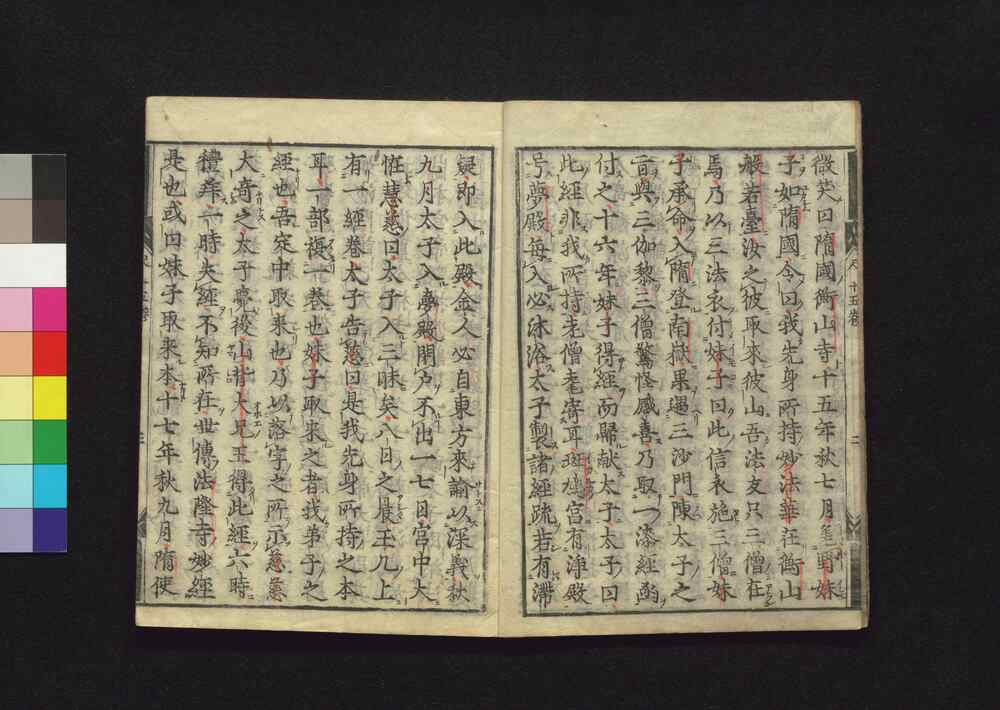 微笑曰隋國衡山寺十五年秋七月遣野妹
子如隋國令曰我先身所持妙法華在衡山
般若臺汝之彼取來彼山吾法友只三僧在
焉乃以三法衣付妹子曰此信衣施三僧妹
子承命入隋登南嶽果遇三沙門陳太子之
旨與三伽黎三僧驚怪感喜乃取一漆經函
付之十六年妹子得經而歸献太子太子曰
此經非我所持老僧耄寄耳斑鳩宮有淨殿
号夢殿每入必沐浴太子製諸經疏若有滯
疑即入此殿金人必自東方來諭以深義秋
九月太子入夢殿閉户不出一七日宮中大
恠慧慈曰太子入三昧矣八日之晨玉几上
有一經卷太子告慈曰是我先身所持之本
耳一部複一卷也妹子取來之者我弟子之
經也吾㝎中取來也乃以落字之所示慈慈
大奇之太子薨後山背大兄王得此經六時
禮拜一時失經不知所在世傳法隆寺妙經
是也或曰妹子取來本十七年秋九月隋使
十五卷
二